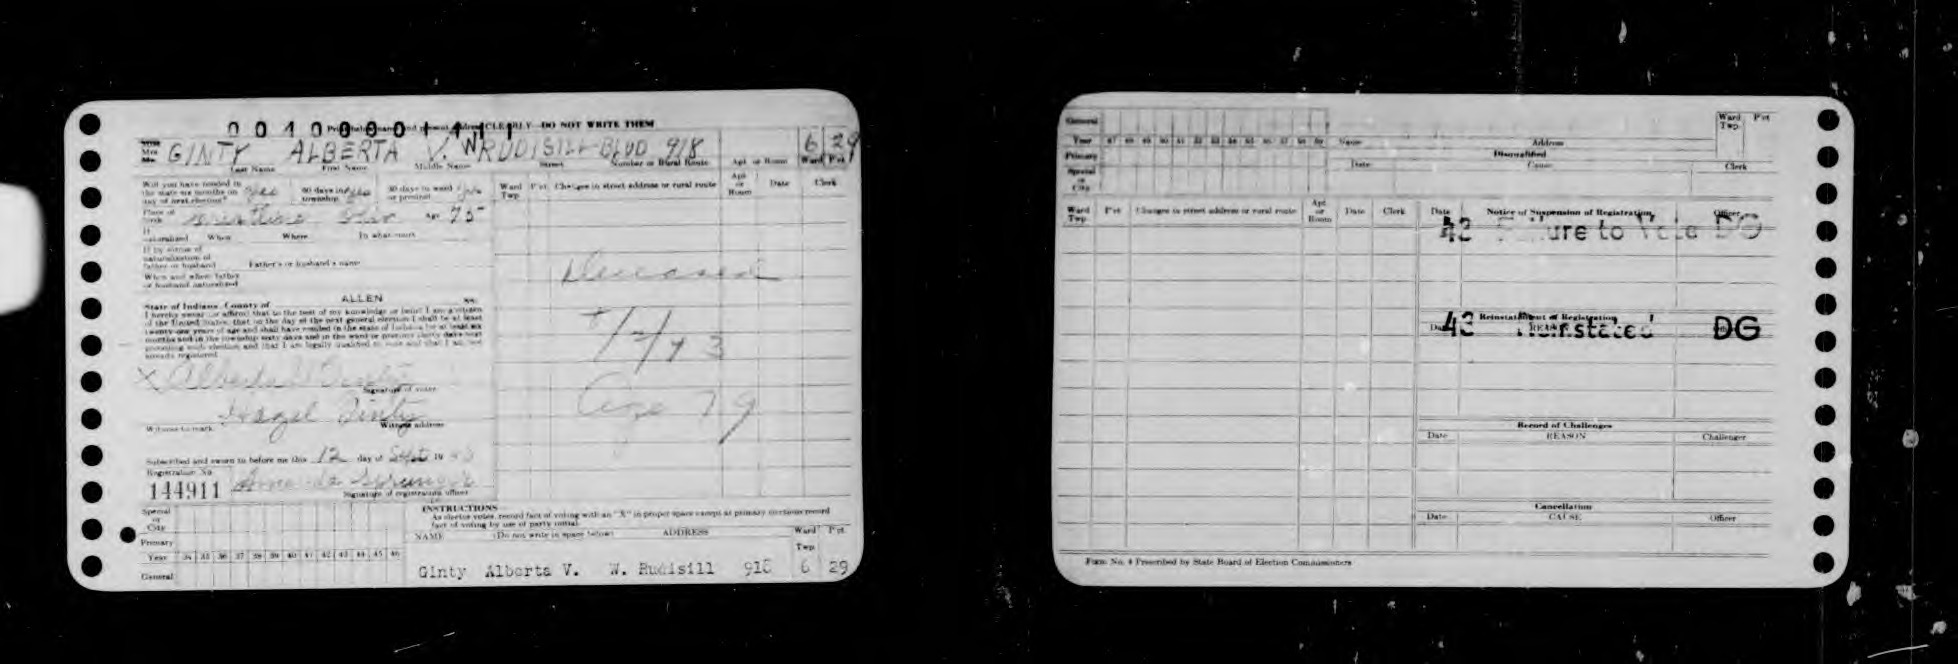 0 0 1 0 0 0 0 1 1 1
CLEARLY—DO NOT WRITE THEM
GINTY ALBERTA V. W RUDISILL BLVD 918 6 29
Last Name First Name Middle Name Street Number or Rural Route Apt or Room Ward Pct.
Will you have resided in the state six months on day of next election? yes 60 days in township yes 30 days in ward or precinct yes
Place of birth Age 75
If naturalized When Where In what court
If by virtue of naturalization of father or husband Father's or husband's name
When and where father or husband naturalized
State of Indiana, County of ALLEN ss:
I hereby swear (or affirm) that to the best of my knowledge or belief I am a citizen
of the United States, that on the day of the next general election I shall be at least
twenty-one years of age and shall have resided in the state of Indiana for at least six
months and in the township sixty days and in the ward or precinct thirty days next
preceding such election and that I am legally qualified to vote and that I am not
already registered.
X Alberta V Ginty
Signature of voter
Hazel Ginty
Witness to mark Witness address
Subscribed and sworn to before me this 12 day of Sept 19
Registration No.
144911
Signature of registration officer
Ward Twp. Pct. Changes in street address or rural route Apt or Room Date Clerk
Deceased
Age 79
Special or City
Primary
Year 34 35 36 37 38 39 40 41 42 43 44 45 46
General
INSTRUCTIONS
As elector votes, record fact of voting with an "X" in proper space except at primary elections record
fact of voting by use of party initial.
NAME (Do not write in space below) ADDRESS Ward Twp. Pct.
Ginty Alberta V. W. Rudisill 918 6 29
General
Year 47 48 49 50 51 52 53 54 55 56 57 58 59
Primary
Special or City
Name Address Ward Twp. Pct.
Disqualified
Date Cause Clerk
Ward Twp. Pct. Changes in street address or rural route Apt or Room Date Clerk
Date Notice of Suspension of Registration Officer
42 Failure to Vote DG
Reinstatement of Registration
43 Reinstated DG
Record of Challenges
Date REASON Challenger
Cancellation
Date CAUSE Officer
Form No. 4 Prescribed by State Board of Election Commissioners